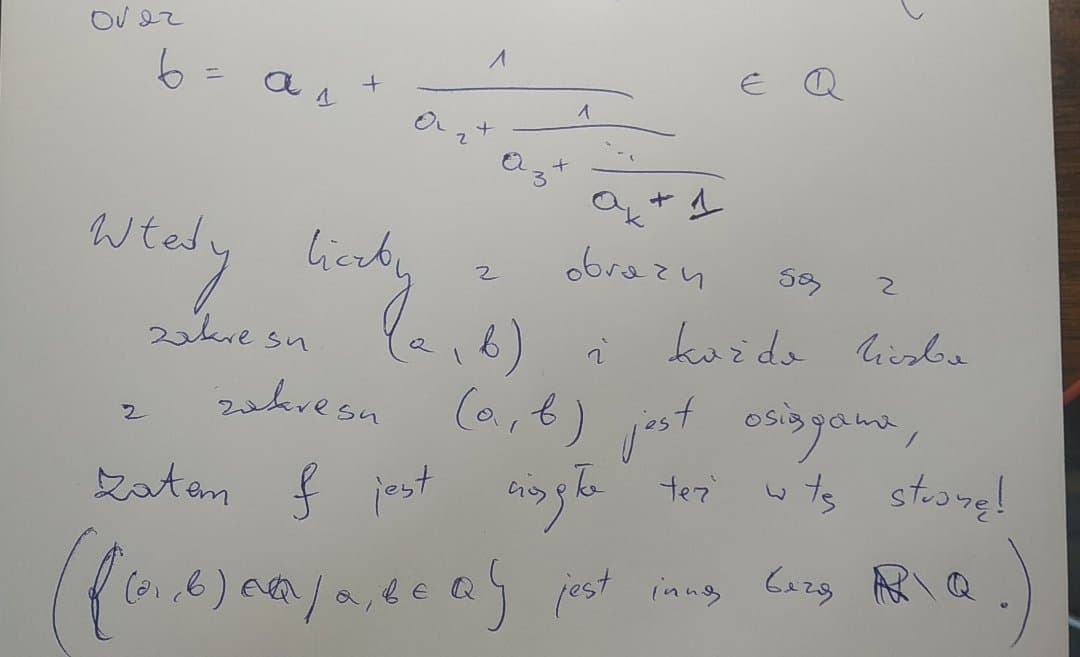 oraz
b = a₁ + 1 ∈ ℚ
a₂ + 1
a₃ + ⋱
a_k + 1
Wtedy liczby z obrazu są z
zakresu (a, b) i każda liczba
z zakresu (a, b) jest osiągana,
zatem f jest ciągła też w tę stronę!
({(a, b) / a, b ∈ ℚ} jest inną bazą ℝ \ ℚ.)